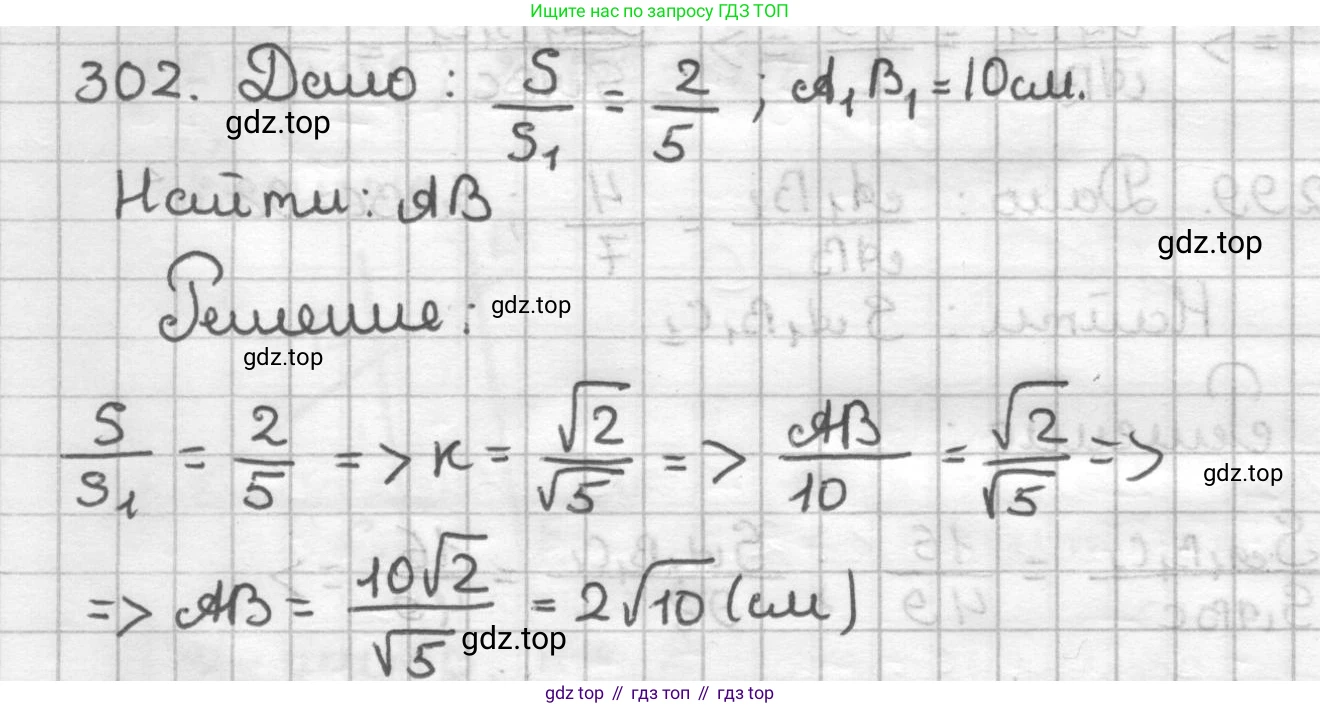 Ищите нас по запросу ГДЗ ТОП
302. Дано: S/S₁ = 2/5; A₁B₁ = 10см.
gdz.top
Найти: AB
gdz.top
Решение: gdz.top
gdz.top
S/S₁ = 2/5 => к = √2/√5 => AB/10 = √2/√5 =>
gdz.top
=> AB = 10√2/√5 = 2√10 (см)
gdz.top
gdz top // гдз топ // gdz top